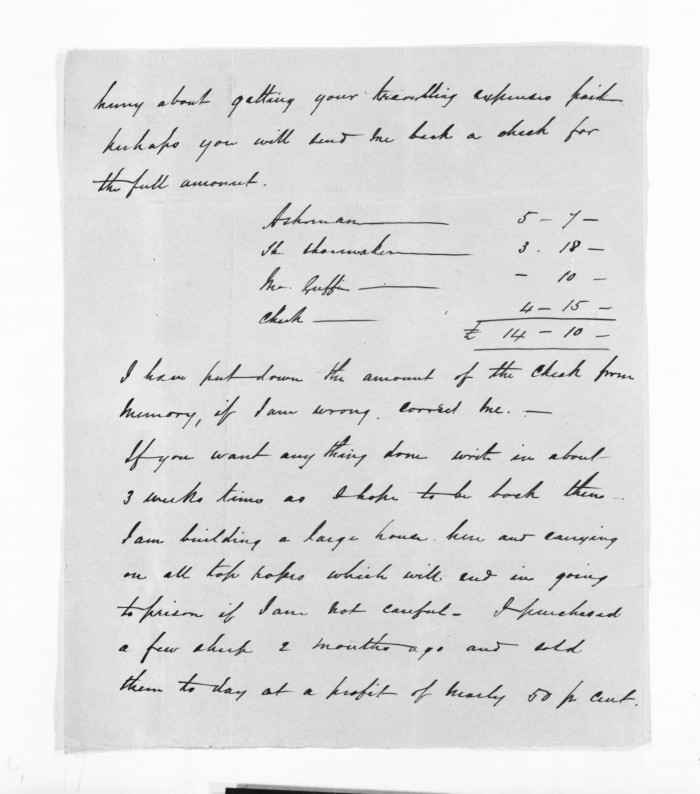 hurry about getting your travelling expenses paid
perhaps you will send me back a check for
the full amount.
Ackerman — 5 – 7 –
The Shoemaker — 3 . 18 –
Mr. Guffin — – 10 –
Check — 4 – 15 –
£ 14 – 10 –
I have put down the amount of the check from
memory, if I am wrong, correct me. —
If you want anything done write in about
3 weeks time as I hope to be back then –
I am building a large house here and carrying
on all top ropes which will end in going
to prison if I am not careful – I purchased
a few sheep 2 months ago and sold
them to day at a profit of nearly 50 pr cent.